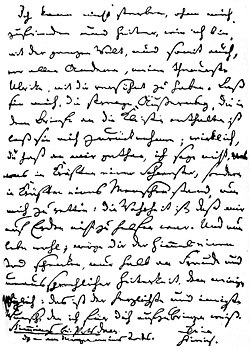 Ich kann nicht sterben, ohne mich,
zufrieden und heiter, wie ich bin,
mit der ganzen Welt, und somit auch,
vor allen Anderen, meine theuerste
Ulrike, mit dir versöhnt zu haben. Laß
sie mich, die strenge Äußerung, die in
dem Briefe an die Kleisten enthalten ist
laß sie mich zurücknehmen; wirklich,
du hast an mir gethan, ich sage nicht,
was in Kräften einer Schwester, sondern
in Kräften eines Menschen stand, um
mich zu retten: die Wahrheit ist, daß mir
auf Erden nicht zu helfen war. Und nun
lebe wohl; möge dir der Himmel einen
Tod schenken, nur halb an Freude und
unaussprechlicher Heiterkeit, dem meinigen
gleich: das ist der herzlichste und innigste
Wunsch, den ich für dich aufzubringen weiß.
Stimmings bei Potsdam. Dein
d. – am Morgen meines Todes. Heinrich.